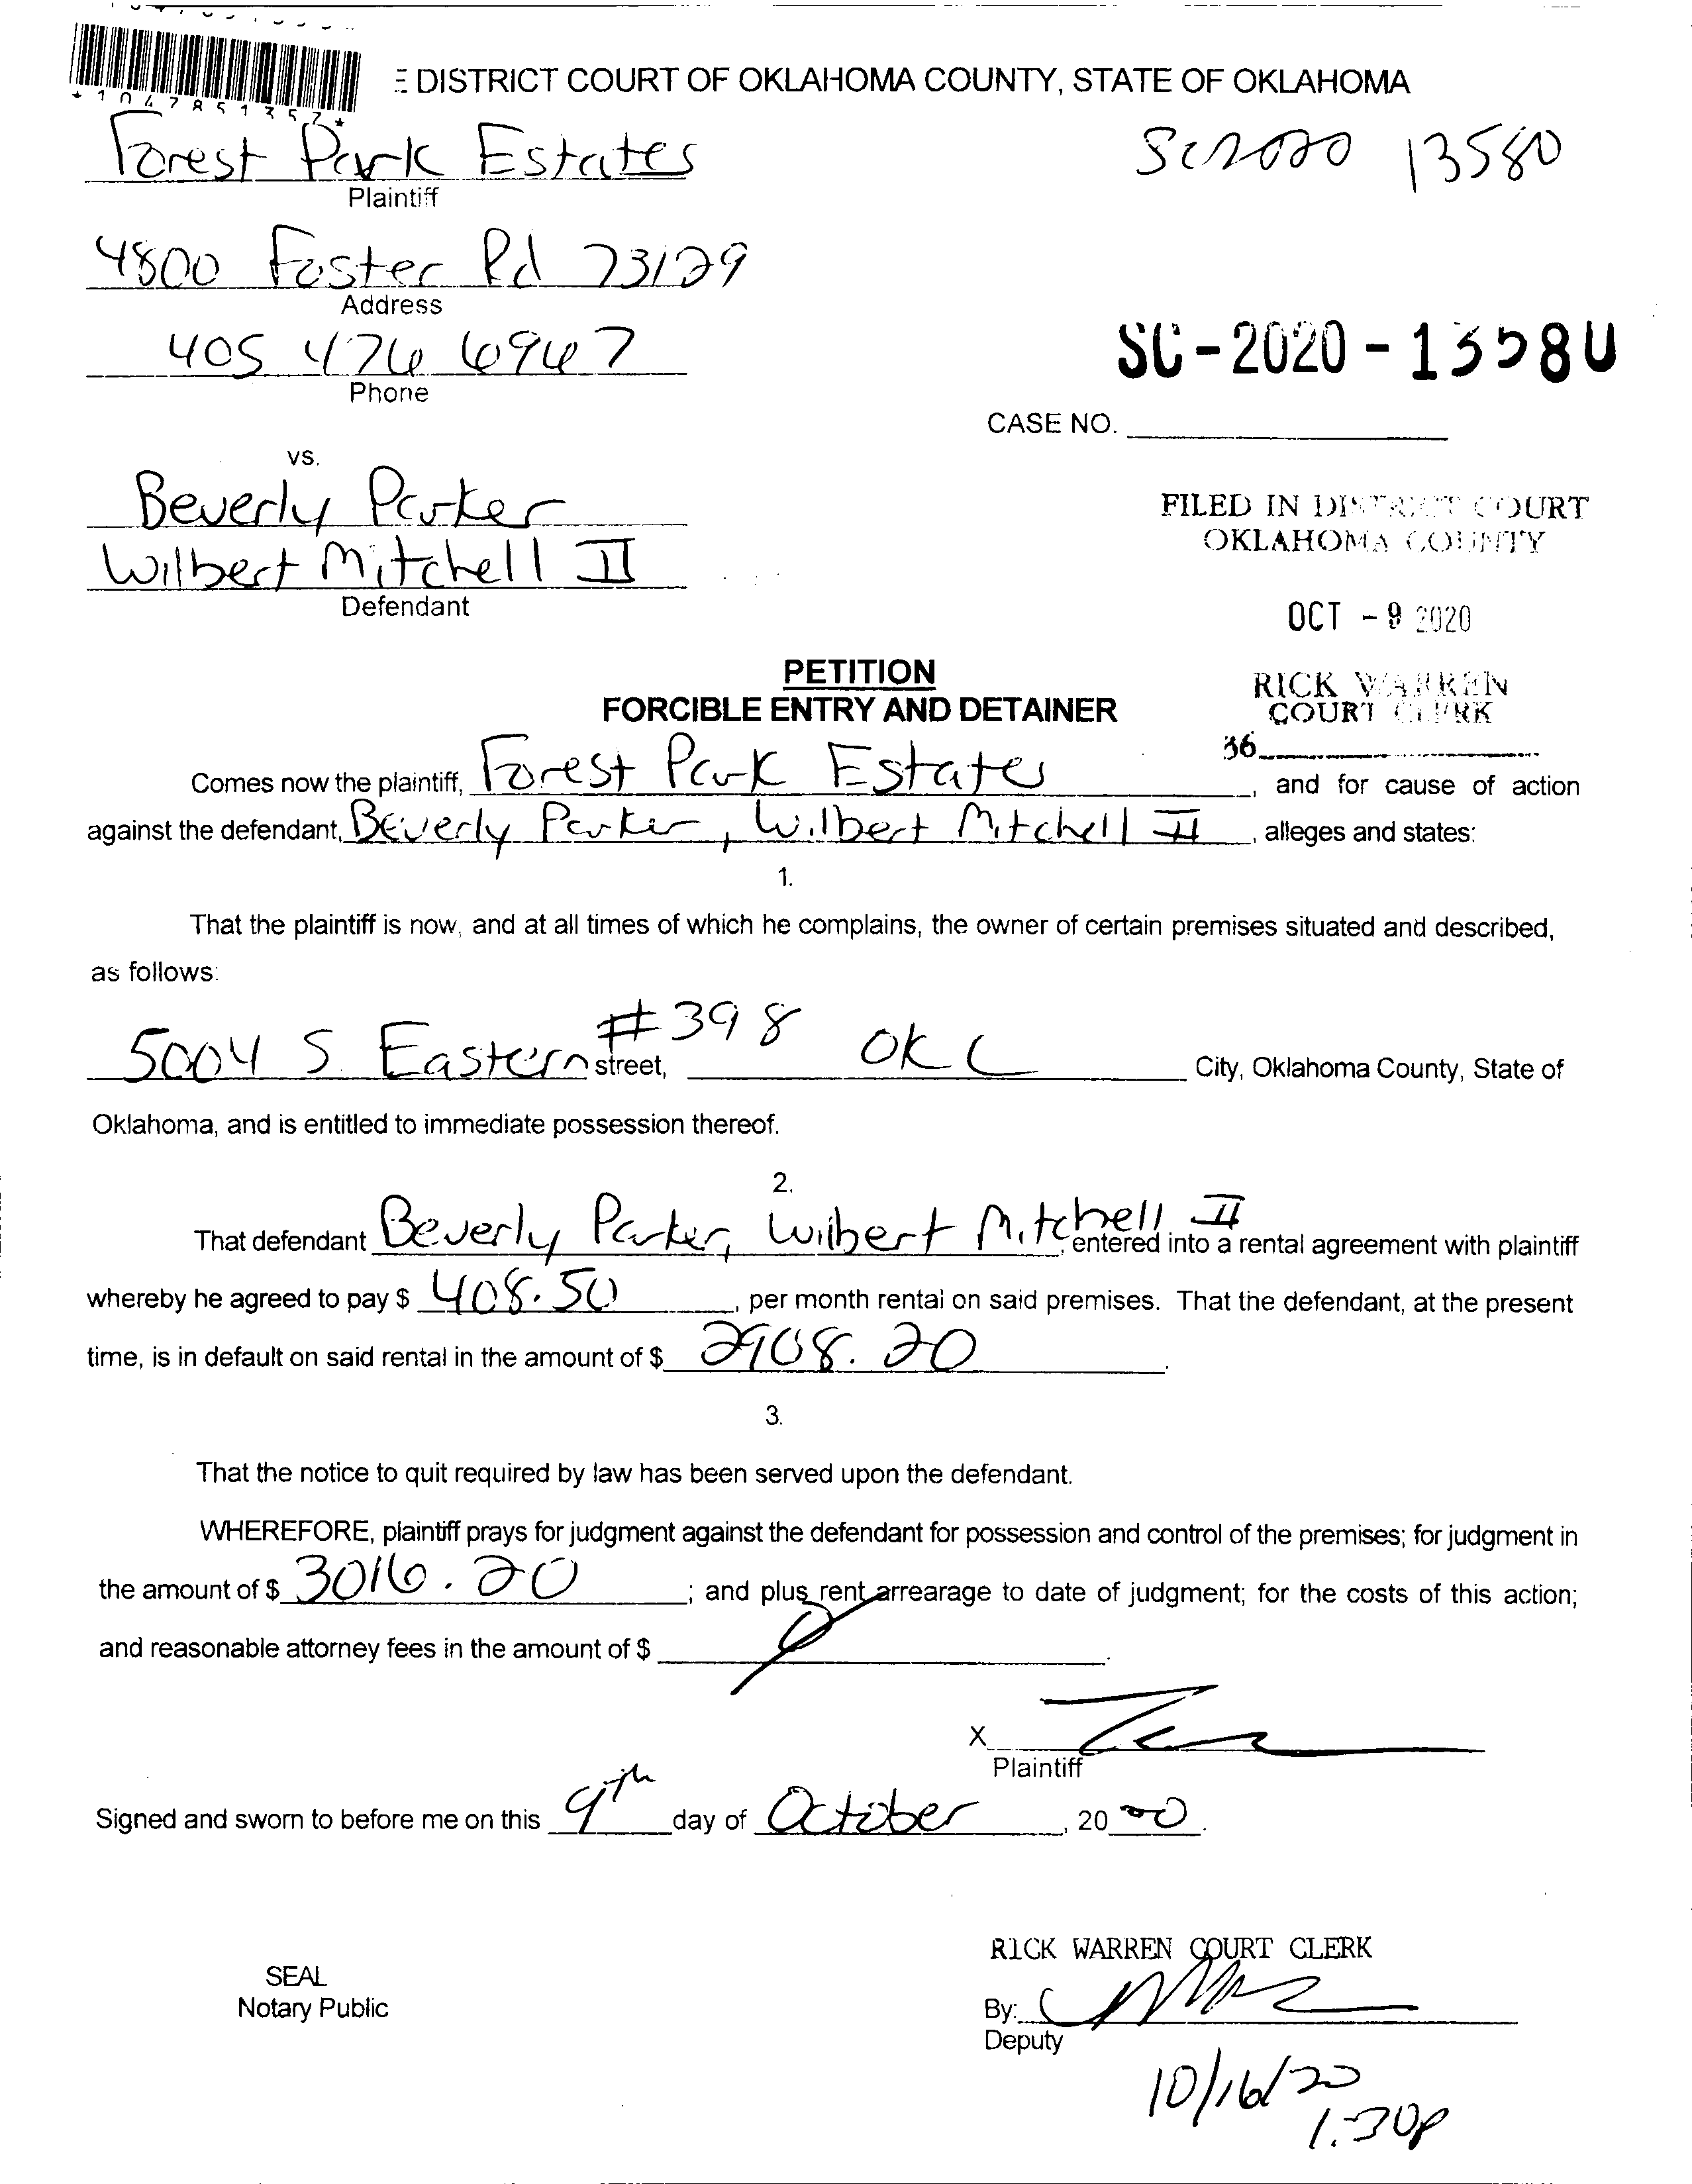 *1047851357*
E DISTRICT COURT OF OKLAHOMA COUNTY, STATE OF OKLAHOMA
Forest Park Estates
Plaintiff
SC2020 13580
4800 Foster Rd 73129
Address
405 476 6967
Phone
SC-2020-13580
CASE NO.
vs.
Beverly Parker
Wilbert Mitchell II
Defendant
FILED IN DISTRICT COURT
OKLAHOMA COUNTY
OCT - 9 2020
PETITION
FORCIBLE ENTRY AND DETAINER
RICK WARREN
COURT CLERK
36
Comes now the plaintiff, Forest Park Estates, and for cause of action
against the defendant, Beverly Parker, Wilbert Mitchell II, alleges and states:
1.
That the plaintiff is now, and at all times of which he complains, the owner of certain premises situated and described,
as follows:
5004 S Eastern #398 street, OKC City, Oklahoma County, State of
Oklahoma, and is entitled to immediate possession thereof.
2.
That defendant Beverly Parker, Wilbert Mitchell II, entered into a rental agreement with plaintiff
whereby he agreed to pay $ 408.50, per month rental on said premises. That the defendant, at the present
time, is in default on said rental in the amount of $ 2908.20.
3.
That the notice to quit required by law has been served upon the defendant.
WHEREFORE, plaintiff prays for judgment against the defendant for possession and control of the premises; for judgment in
the amount of $ 3016.20; and plus rent arrearage to date of judgment; for the costs of this action;
and reasonable attorney fees in the amount of $
X
Plaintiff
Signed and sworn to before me on this 9th day of October, 2020.
RICK WARREN COURT CLERK
SEAL
Notary Public
By:
Deputy
10/16/20
1:30p